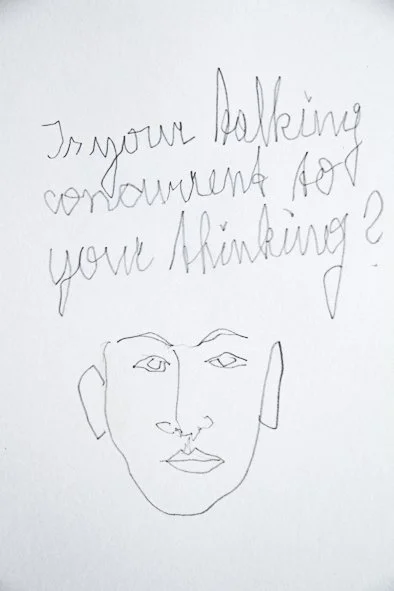 Is your talking
concurrent to
your thinking?